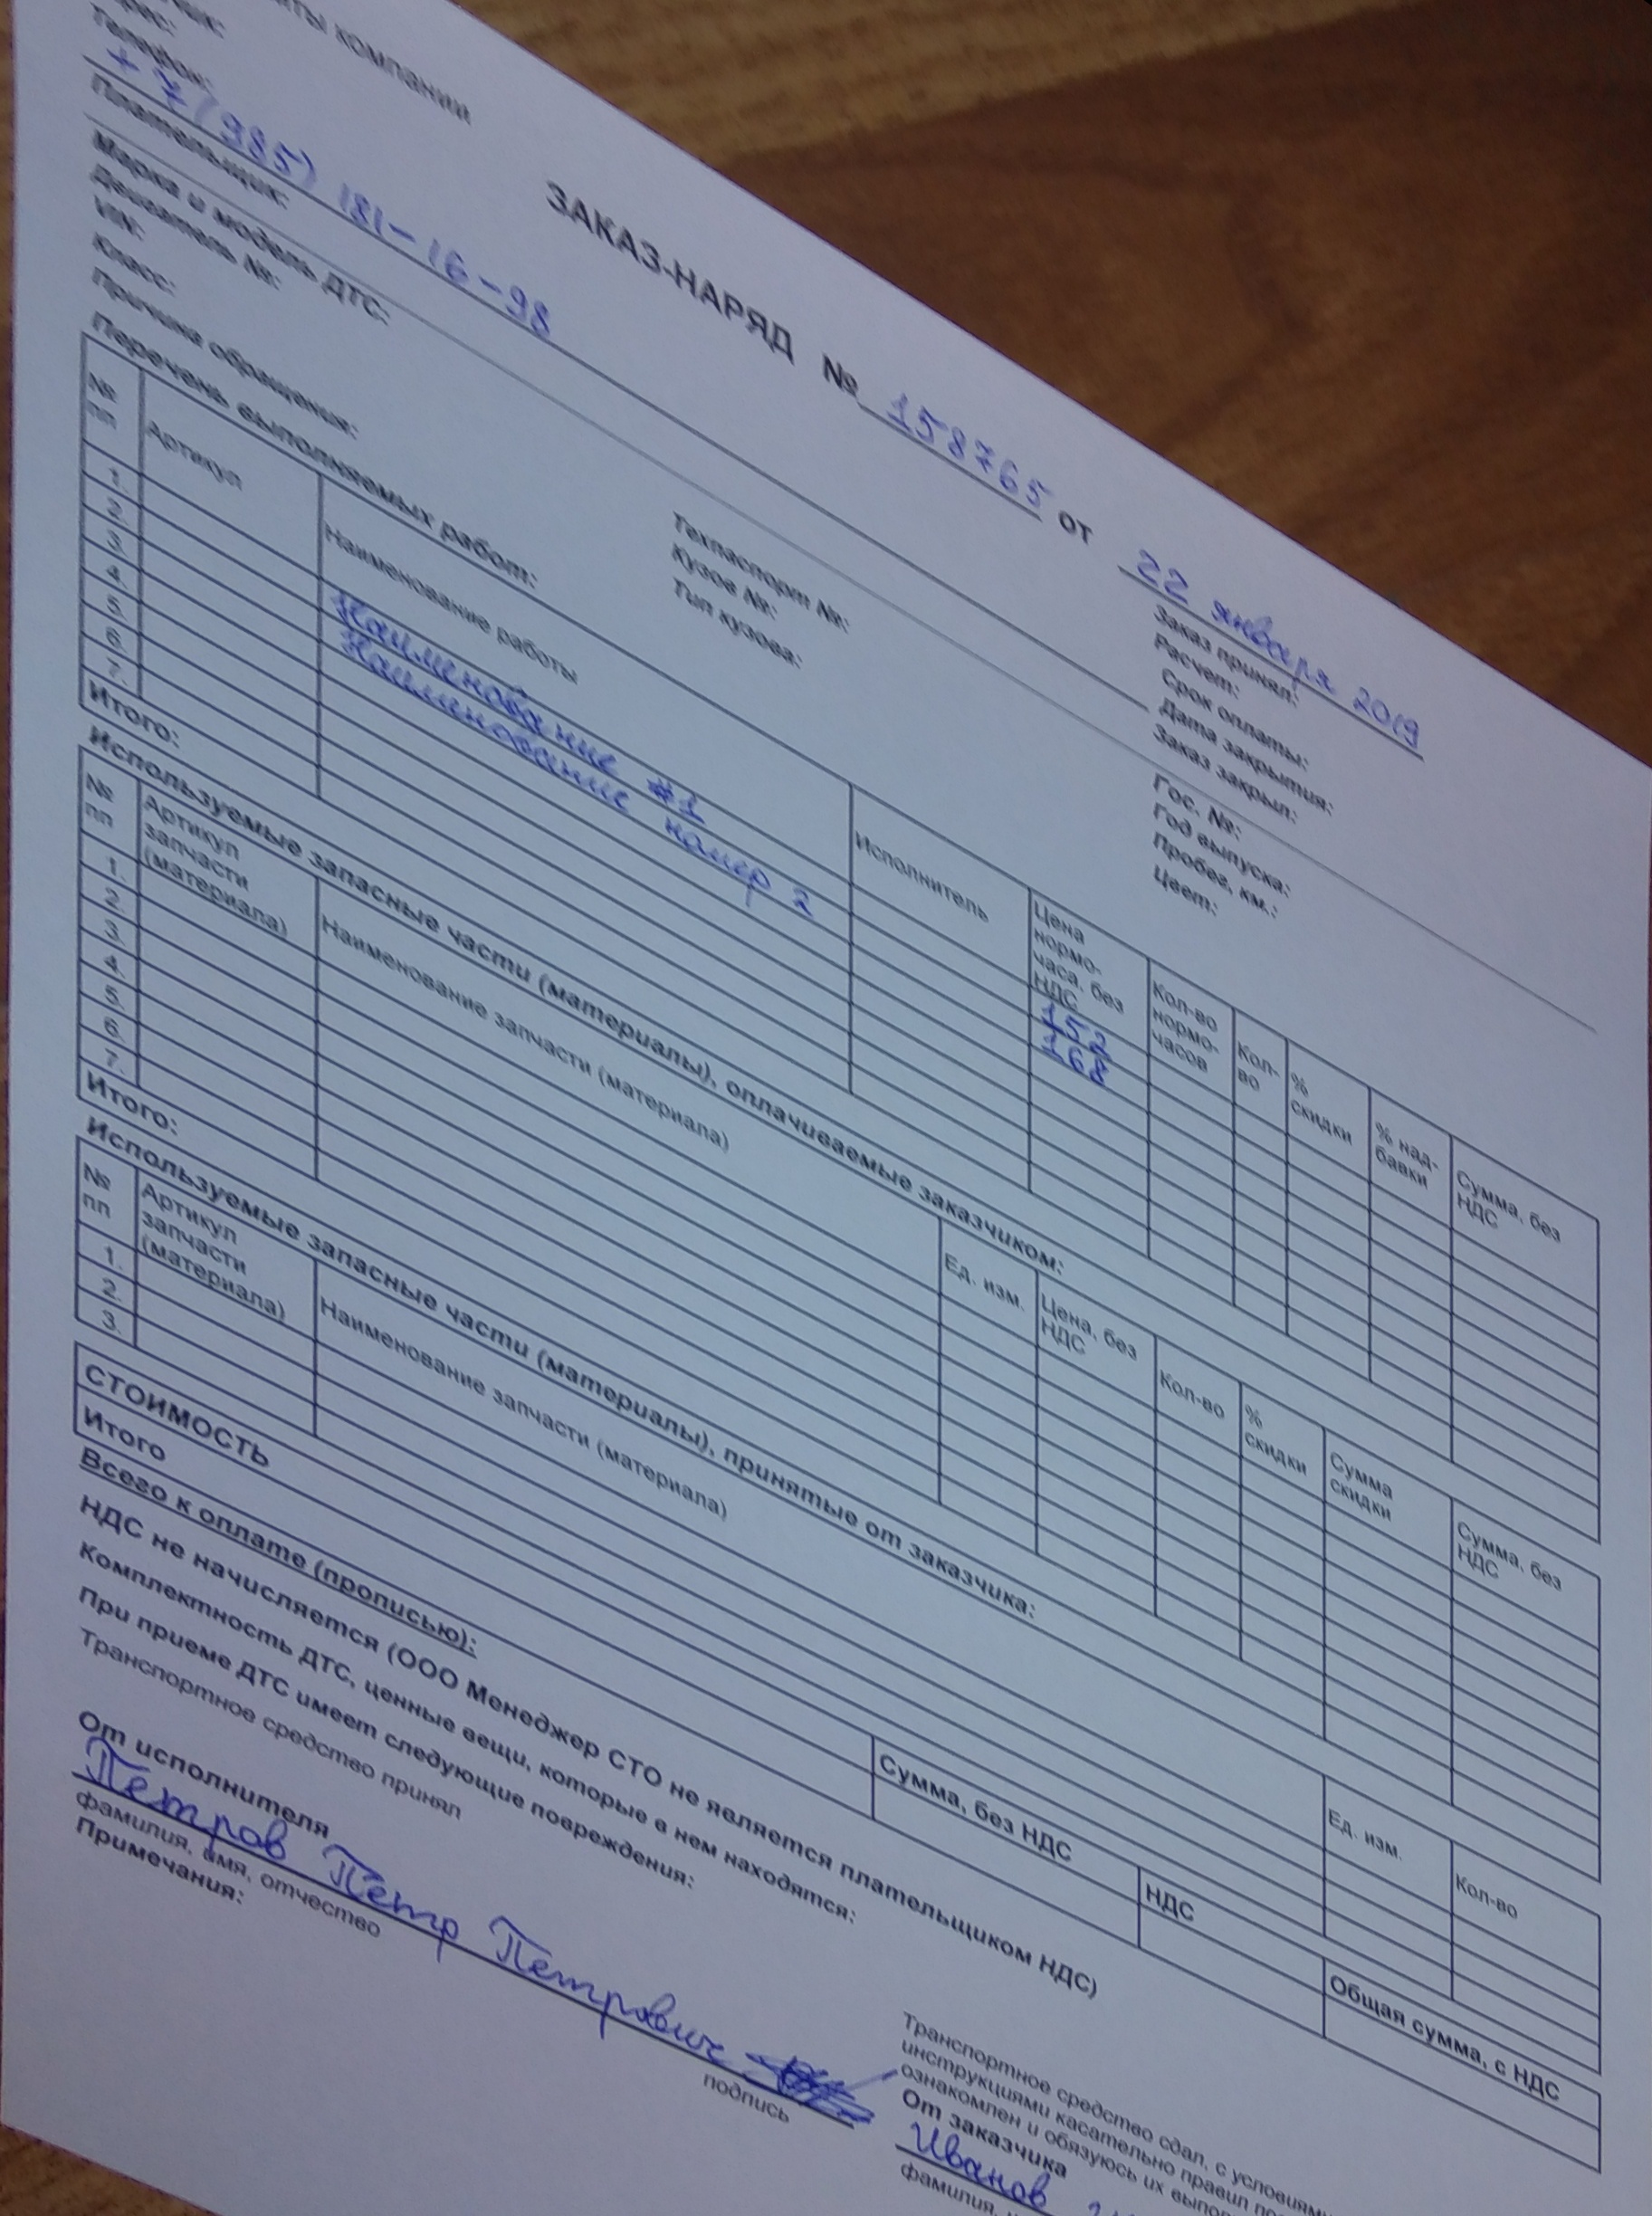 КОМПАНИИ
Телефон:
+7(985) 181-16-98
Плательщик:
ЗАКАЗ-НАРЯД № 158765 от 22 января 2019
Заказ принял:
Расчет:
Срок оплаты:
Дата закрытия:
Заказ закрыл:
Марка и модель ДТС:
Двигатель №:
VIN:
Класс:
Причина обращения:
Техпаспорт №:
Кузов №:
Тип кузова:
Гос. №:
Год выпуска:
Пробег, км.:
Цвет:
Перечень выполняемых работ:
№ пп Артикул Наименование работы Исполнитель Цена нормо-часа, без НДС Кол-во нормо-часов Кол-во % скидки % над-бавки Сумма, без НДС
1. Наименование #1 152
2. Наименование номер 2 168
3.
4.
5.
6.
7.
Итого:
Используемые запасные части (материалы), оплачиваемые заказчиком:
№ пп Артикул запчасти (материала) Наименование запчасти (материала) Ед. изм. Цена, без НДС Кол-во % скидки Сумма скидки Сумма, без НДС
1.
2.
3.
4.
5.
6.
7.
Итого:
Используемые запасные части (материалы), принятые от заказчика:
№ пп Артикул запчасти (материала) Наименование запчасти (материала) Ед. изм. Кол-во
1.
2.
3.
СТОИМОСТЬ Сумма, без НДС НДС Общая сумма, с НДС
Итого
Всего к оплате (прописью):
НДС не начисляется (ООО Менеджер СТО не является плательщиком НДС)
Комплектность ДТС, ценные вещи, которые в нем находятся:
При приеме ДТС имеет следующие повреждения:
Транспортное средство принял
От исполнителя
Петров Петр Петрович
фамилия, имя, отчество
подпись
Примечания:
Транспортное средство сдал, с условиями
инструкциями касательно правил
ознакомлен и обязуюсь их
От заказчика
Иванов
фамилия,